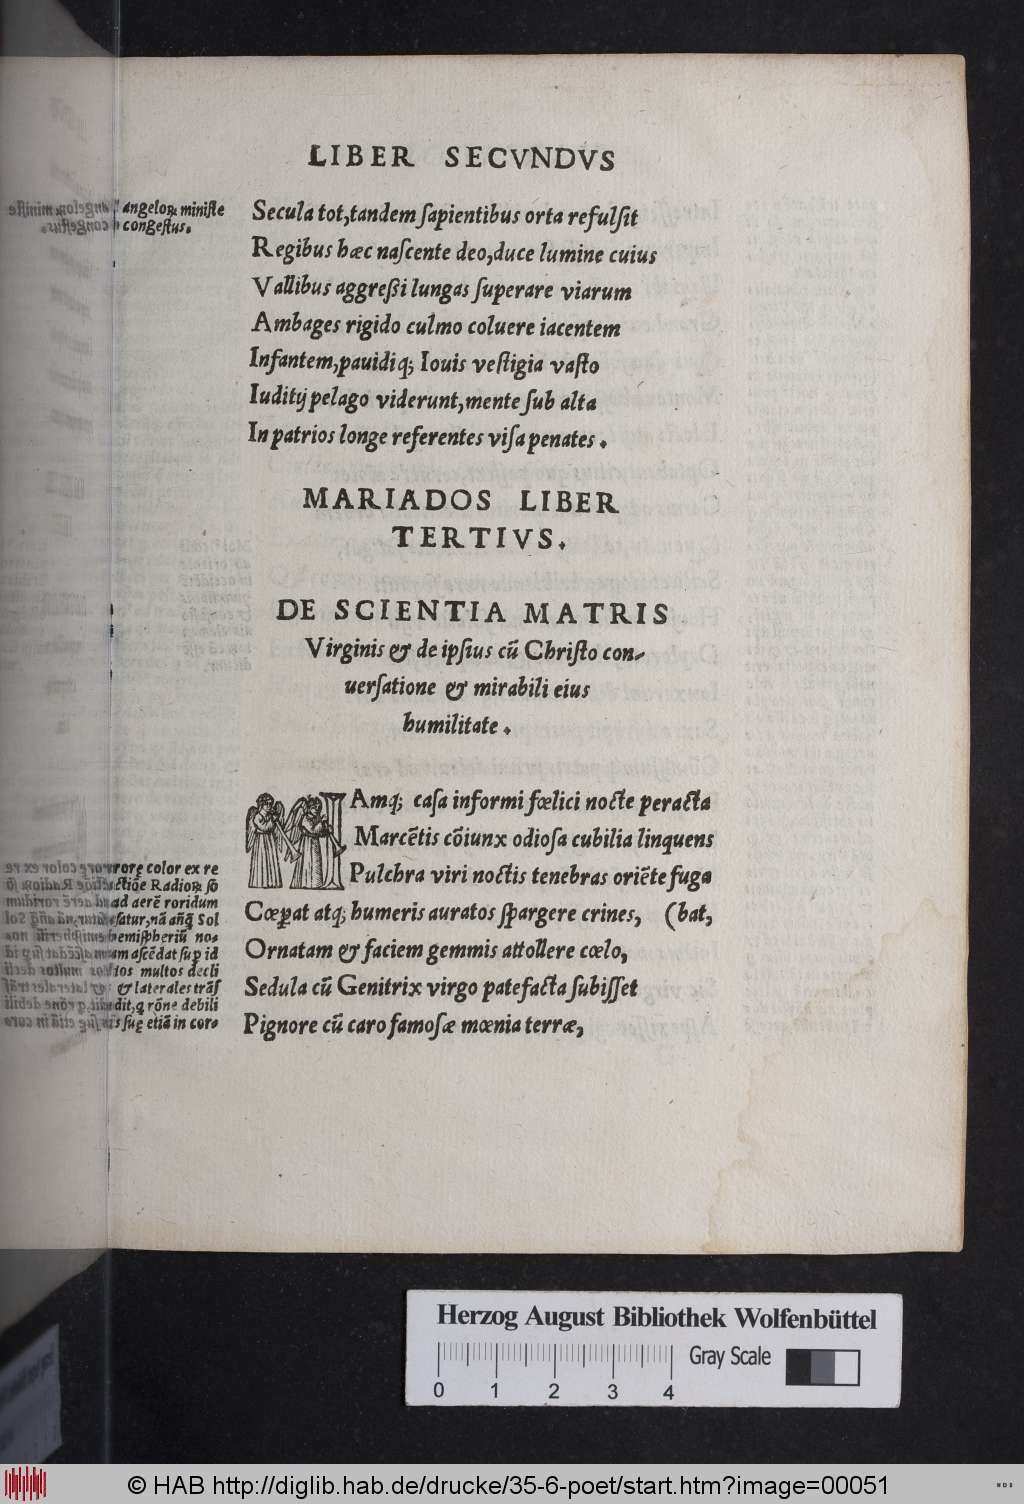 LIBER SECVNDVS
angeloꝝ miniſte
congeſtus.
Secula tot,tandem ſapientibus orta refulſit
Regibus hæc naſcente deo,duce lumine cuius
Vallibus aggreßi lungas ſuperare viarum
Ambages rigido culmo coluere iacentem
Infantem,pauidiq; Iouis veſtigia vaſto
Iuditij pelago viderunt,mente ſub alta
In patrios longe referentes viſa penates.
MARIADOS LIBER
TERTIVS.
DE SCIENTIA MATRIS
Virginis & de ipſius cū Chriſto con-
uerſatione & mirabili eius
humilitate.
NAmq; caſa informi fœlici nocte peracta
Marcētis cōiunx odioſa cubilia linquens
Pulchra viri noctis tenebras oriēte fuga
Cœpat atq; humeris auratos ſpargere crines, (bat,
Ornatam & faciem gemmis attollere cœlo,
Sedula cū Genitrix virgo patefacta ſubiſſet
Pignore cū caro famoſæ mœnia terræ,
color ex re
Radioꝝ ſō
ad aerē roridum
ſatur,nā añq̃ Sol
hemiſpheriū no-
aſcēdat ſup id
multos decli
& laterales trāſ
dit,q rōne debili
ſug etiā in coro
Herzog August Bibliothek Wolfenbüttel
Gray Scale
0 1 2 3 4
© HAB http://diglib.hab.de/drucke/35-6-poet/start.htm?image=00051